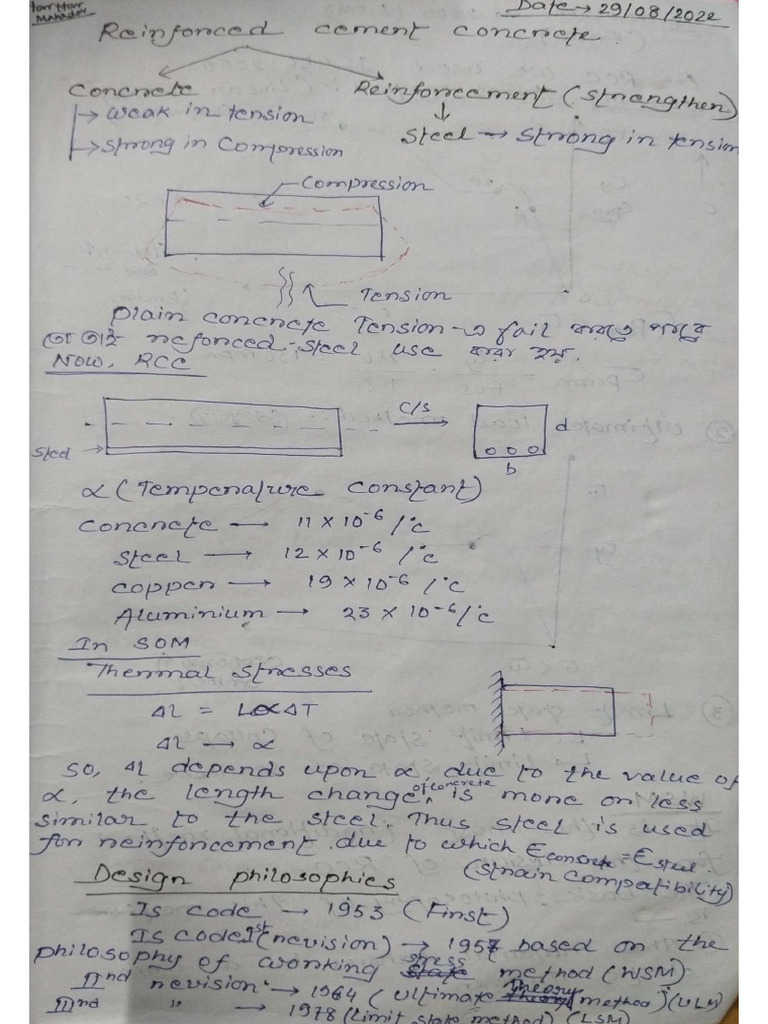 Harr Harr
Mahadev
Date → 29/08/2022
Reinforced cement concrete.
Concrete
Reinforcement (Strengthen)
→ weak in tension
→ strong in compression
Steel → Strong in tension
Compression
Tension
Plain concrete Tension-এ fail করতে পারে
তাই reforced-steel use করা হয়.
Now, RCC
C/S
d
Steel
b
α (Temperature constant)
Concrete → 11 × 10⁻⁶ /°c
Steel → 12 × 10⁻⁶ /°c
copper → 19 × 10⁻⁶ /°c
Aluminium → 23 × 10⁻⁶ /°c
In SOM
Thermal stresses
Δl = LαΔT
Δl → α
So, Δl depends upon α, due to the value of
α, the length change of concrete, is more or less
similar to the steel. Thus steel is used
for reinforcement. due to which Єconcrete = Єsteel.
(Strain compatibility)
Design philosophies
Is code → 1953 (First)
Is code Ist (revision) → 1957 based on the
philosophy of working stress method (WSM)
IInd revision → 1964 (Ultimate Theory method) (ULM)
IIIrd " → 1978 (Limit state method) (LSM)